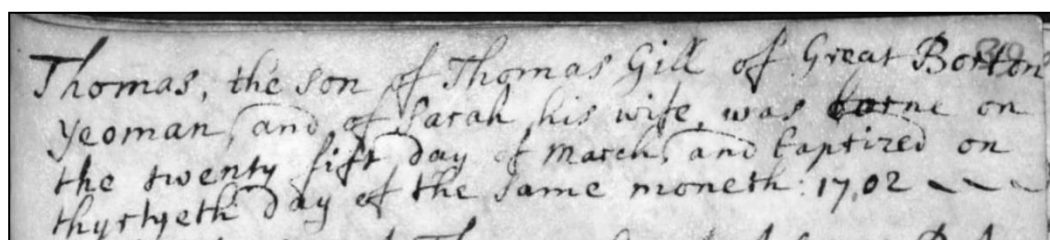 Thomas, the son of Thomas Gill of Great Borton
Yeoman, and of Sarah his wife, was borne on
the twenty fift day of March, and baptized on
thyrtyeth day of the same moneth: 1702